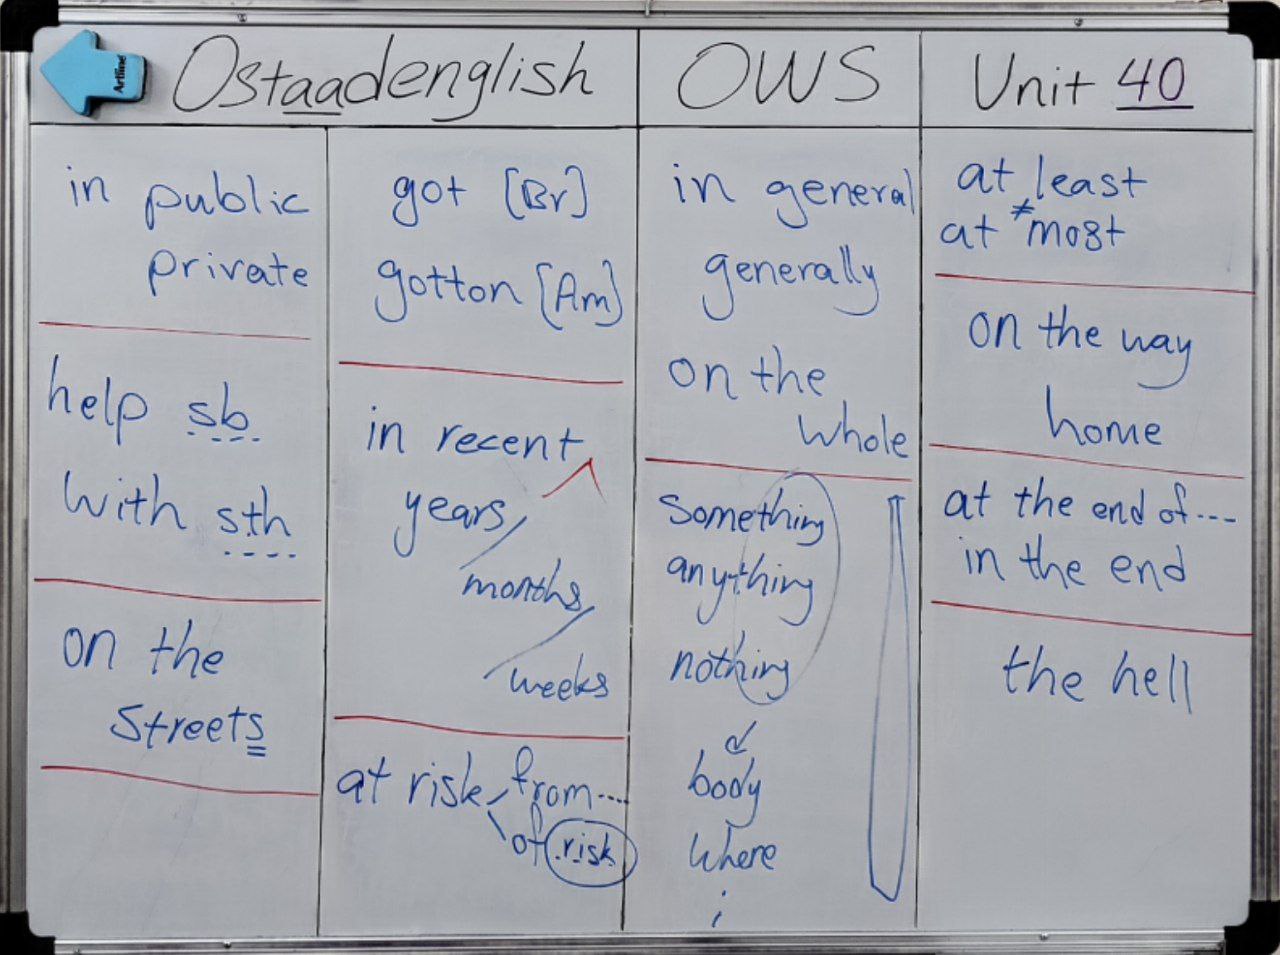 Artline
Ostaadenglish
OWS
Unit 40
in public
private
help sb
with sth
on the
streets
got [Br]
gotton [Am]
in recent
years/
months/
weeks
at risk from....
of risk
in general
generally
on the
whole
something
anything
nothing
body
where
at least
≠
at most
on the way
home
at the end of....
in the end
the hell